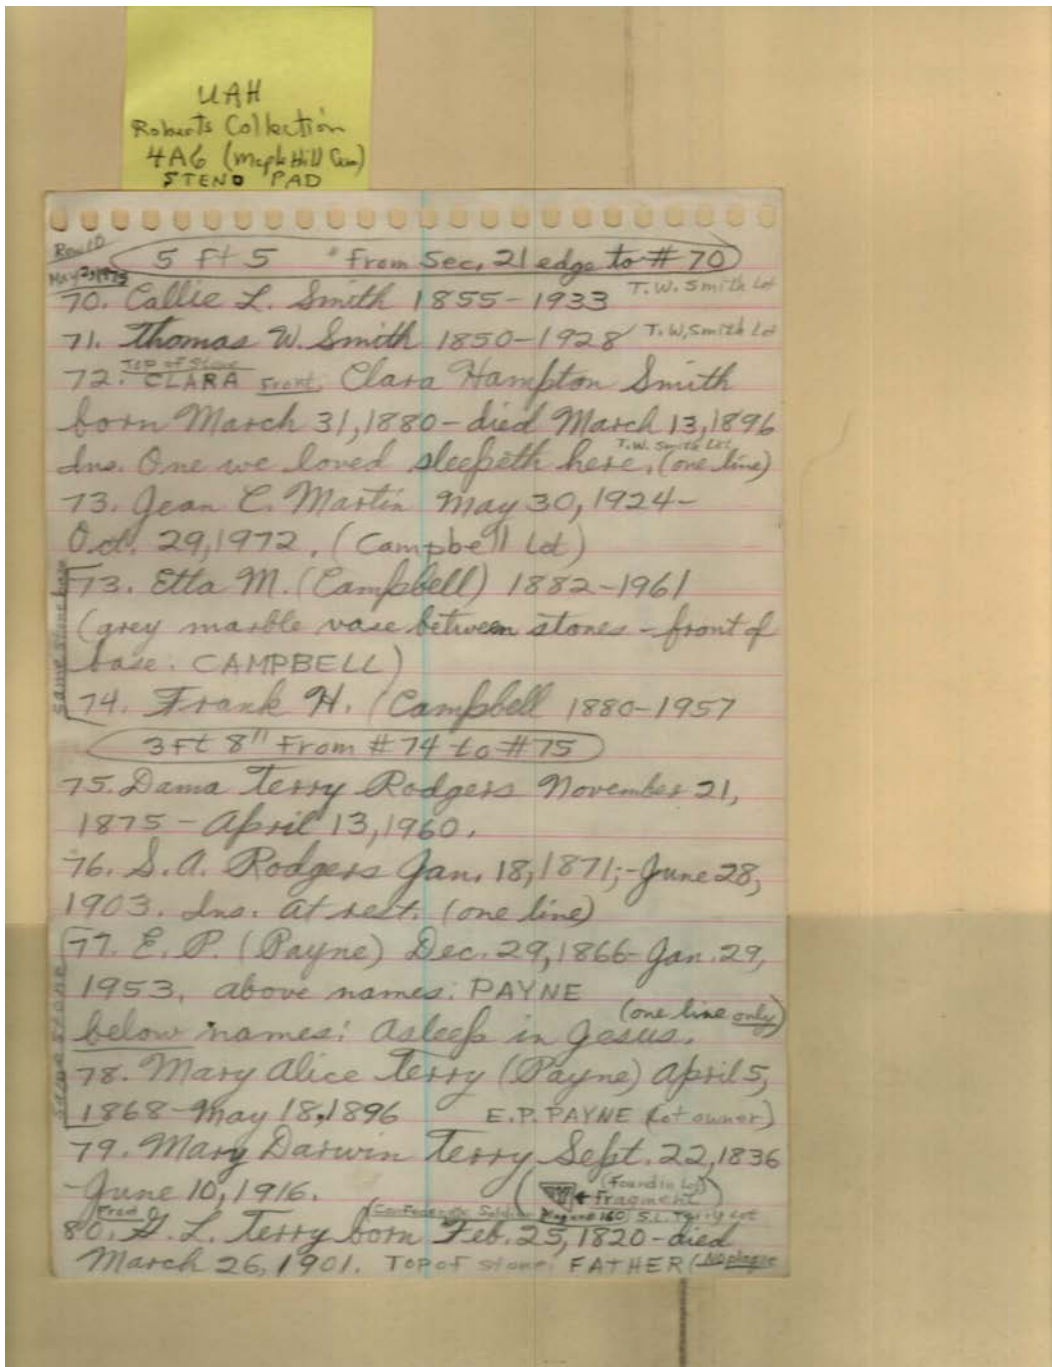 UAH
Roberts Collection
4A6 (Maple Hill Cem)
STENO PAD
Row 10
May 2, 1975
5 ft 5 " From Sec. 21 edge to # 70
70. Callie L. Smith 1855-1933 T.W. Smith Lot
71. Thomas W. Smith 1850-1928 T.W. Smith Lot
Top of Stone
72. CLARA Front. Clara Hampton Smith
born March 31, 1880 - died March 13, 1896
T.W. Smith Lot
Ins. One we loved sleepeth here. (one line)
73. Jean C. Martin May 30, 1924 -
Oct. 29, 1972. (Campbell Lot)
same stone base
73. Etta M. (Campbell) 1882-1961
(grey marble vase between stones - front of
base. CAMPBELL)
74. Frank H. (Campbell 1880-1957
3 Ft 8" From # 74 to # 75
75. Dama Terry Rodgers November 21,
1875 - April 13, 1960.
76. S.A. Rodgers Jan. 18, 1871; - June 28,
1903. Ins. At rest. (one line)
same stone
77. E.P. (Payne) Dec. 29, 1866 - Jan. 29,
1953. above names: PAYNE
(one line only)
below names: Asleep in Jesus.
78. Mary Alice Terry (Payne) April 5,
1868 - May 18, 1896 E.P. PAYNE (Lot owner)
79. Mary Darwin Terry Sept. 22, 1836
- June 10, 1916. (← Fragment (Found in Lot)
From Confederate Soldier S.L. Terry Lot
80. L. Terry born Feb. 25, 1820 - died
March 26, 1901. Top of stone: FATHER (No plaque